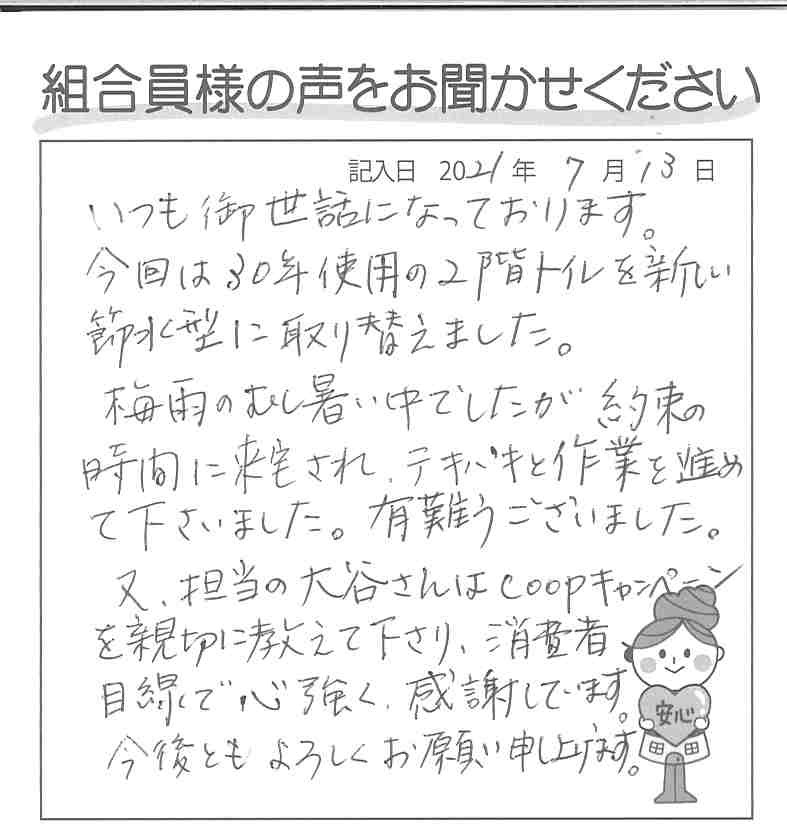 組合員様の声をお聞かせください
記入日 2021年 7月13日
いつも御世話になっております。
今回は30年使用の2階トイレを新しい
節水型に取り替えました。
梅雨のむし暑い中でしたが約束の
時間に来宅され、テキパキと作業を進め
て下さいました。有難うございました。
又、担当の大谷さんはcoopキャンペーン
を親切に教えて下さり、消費者
目線で心強く、感謝しています。
今後ともよろしくお願い申し上げます。
安心